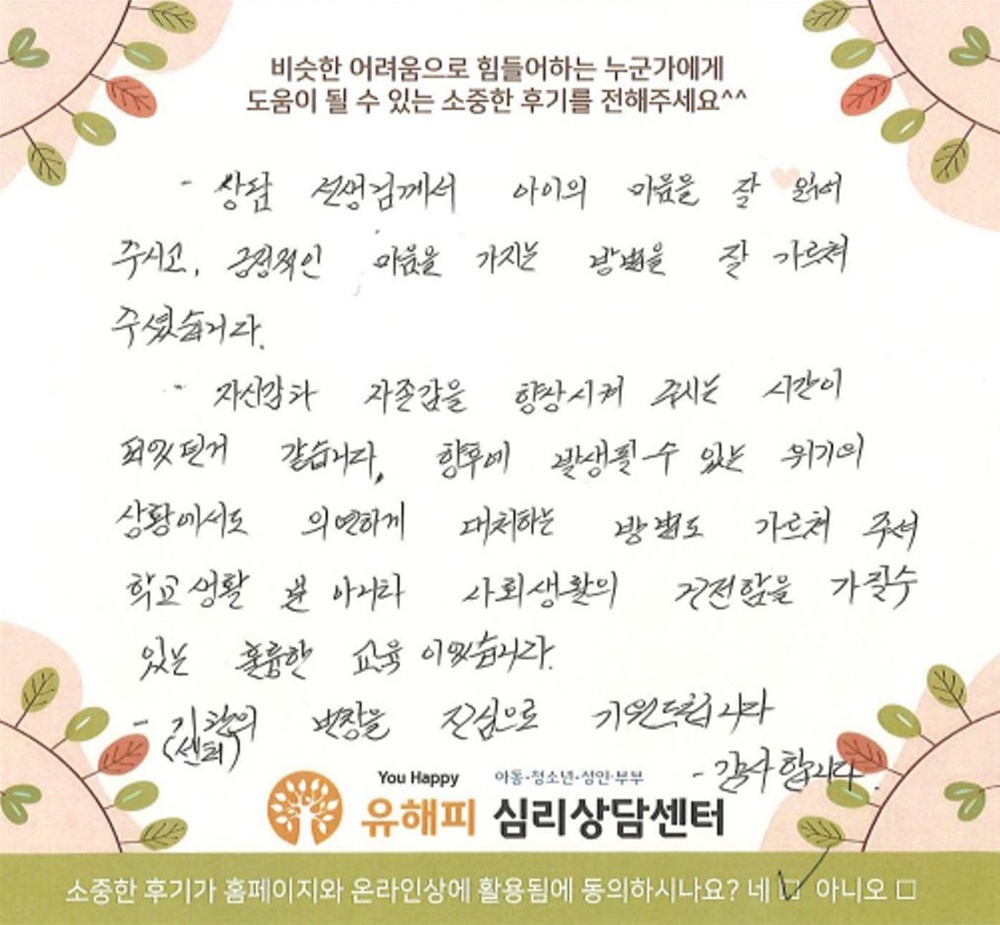 비슷한 어려움으로 힘들어하는 누군가에게
도움이 될 수 있는 소중한 후기를 전해주세요^^
- 상담 선생님께서 아이의 마음을 잘 읽어
주시고, 긍정적인 마음을 가지는 방법을 잘 가르쳐
주셨습니다.
- 자신감과 자존감을 향상시켜 주시는 시간이
되었던거 같습니다, 향후에 발생될 수 있는 위기의
상황에서도 의연하게 대처하는 방법도 가르쳐 주셔
학교생활 뿐 아니라 사회생활의 건전함을 가질수
있는 훌륭한 교육 이었습니다.
- 기관의 번창을 진심으로 기원드립니다
(센터)
- 감사합니다.
You Happy 아동·청소년·성인·부부
유해피 심리상담센터
소중한 후기가 홈페이지와 온라인상에 활용됨에 동의하시나요? 네 ☑ 아니오 □